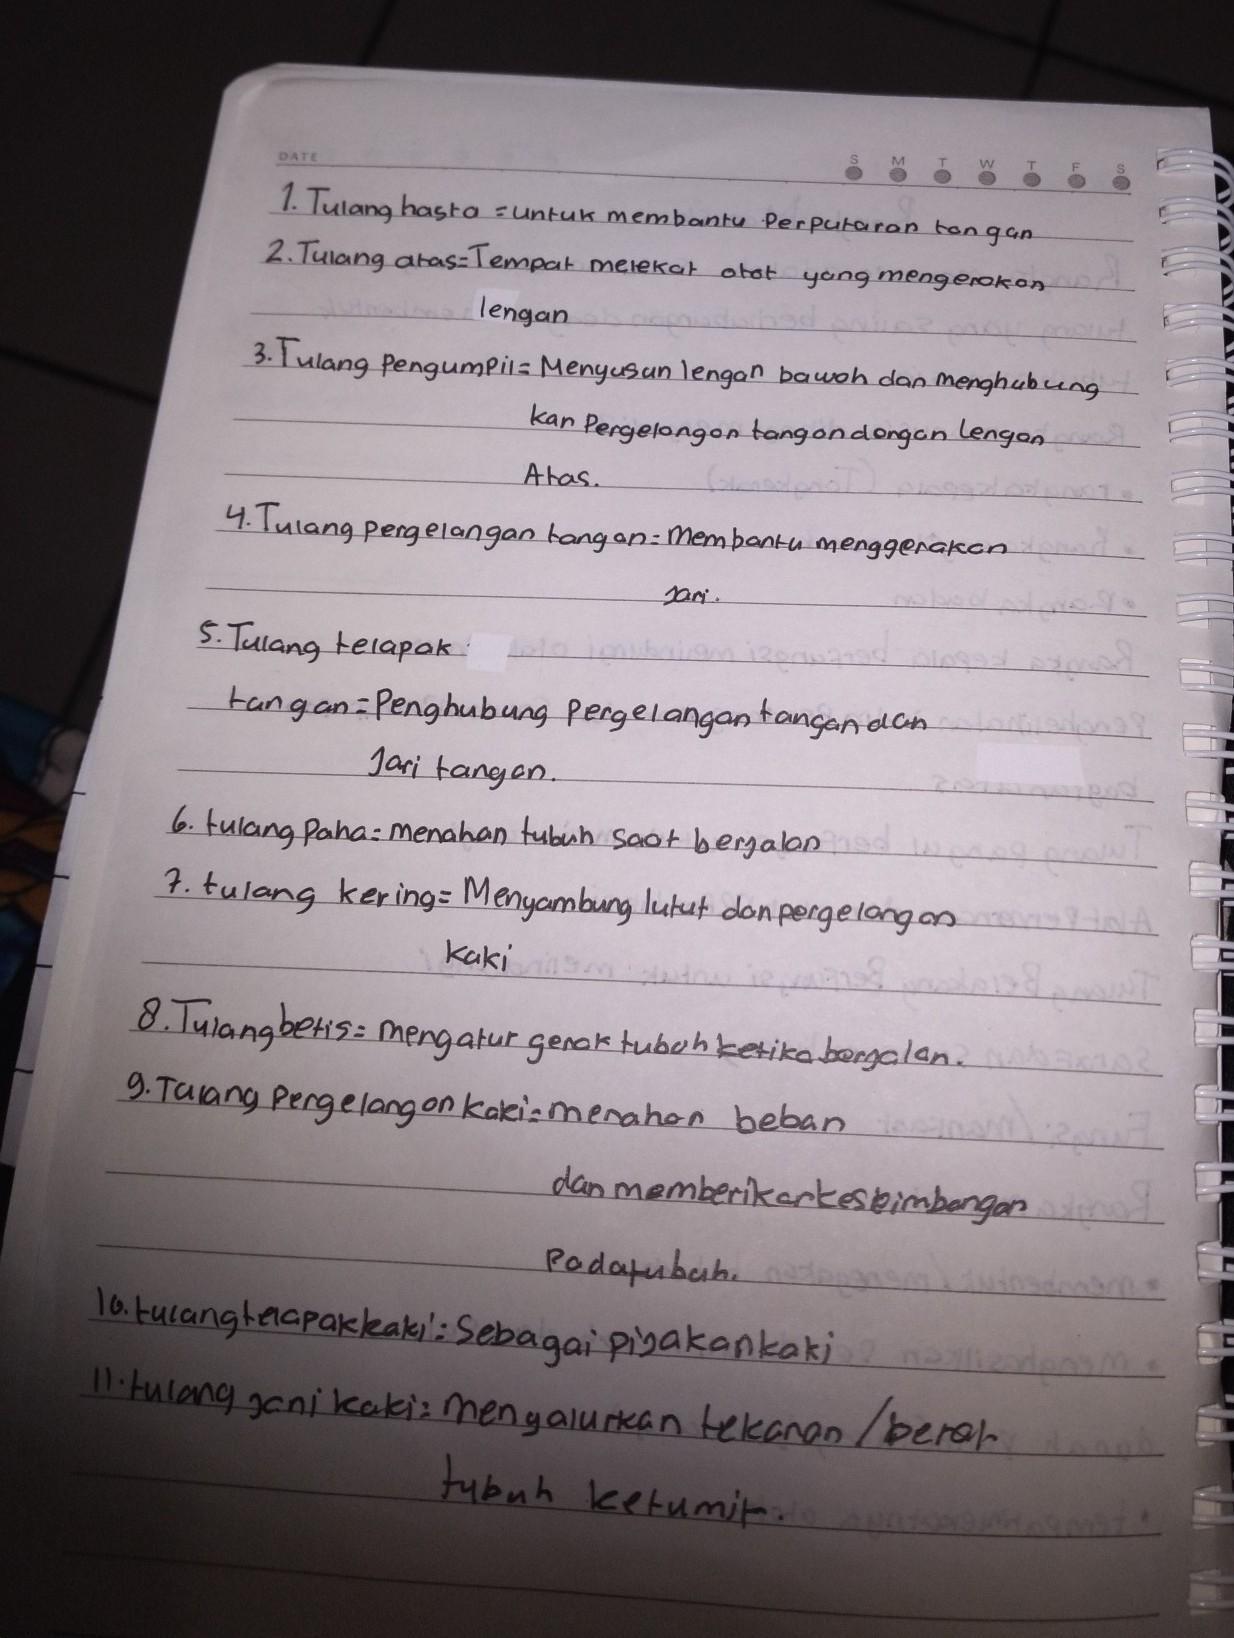 DATE S M T W T F S
1. Tulang hasta = untuk membantu Perputaran tangan
2. Tulang atas = Tempat melekat otot yang mengerakan
lengan
3. Tulang Pengumpil = Menyusun lengan bawah dan menghubung
kan Pergelangan tangan dengan Lengan
Atas.
4. Tulang pergelangan tangan = Membantu menggerakan
Jari.
5. Tulang telapak
tangan = Penghubung pergelangan tangan dan
Jari tangan.
6. tulang Paha = menahan tubuh saat berjalan
7. tulang kering = Menyambung lutut dan pergelangan
kaki
8. Tulang betis = mengatur gerak tubuh ketika berjalan.
9. Tulang Pergelangan kaki = menahan beban
dan memberikan keseimbangan
Pada tubuh.
10. tulang telapak kaki = Sebagai pijakan kaki
11. tulang jari kaki = Mengalurkan tekanan / berat
tubuh ketumit.